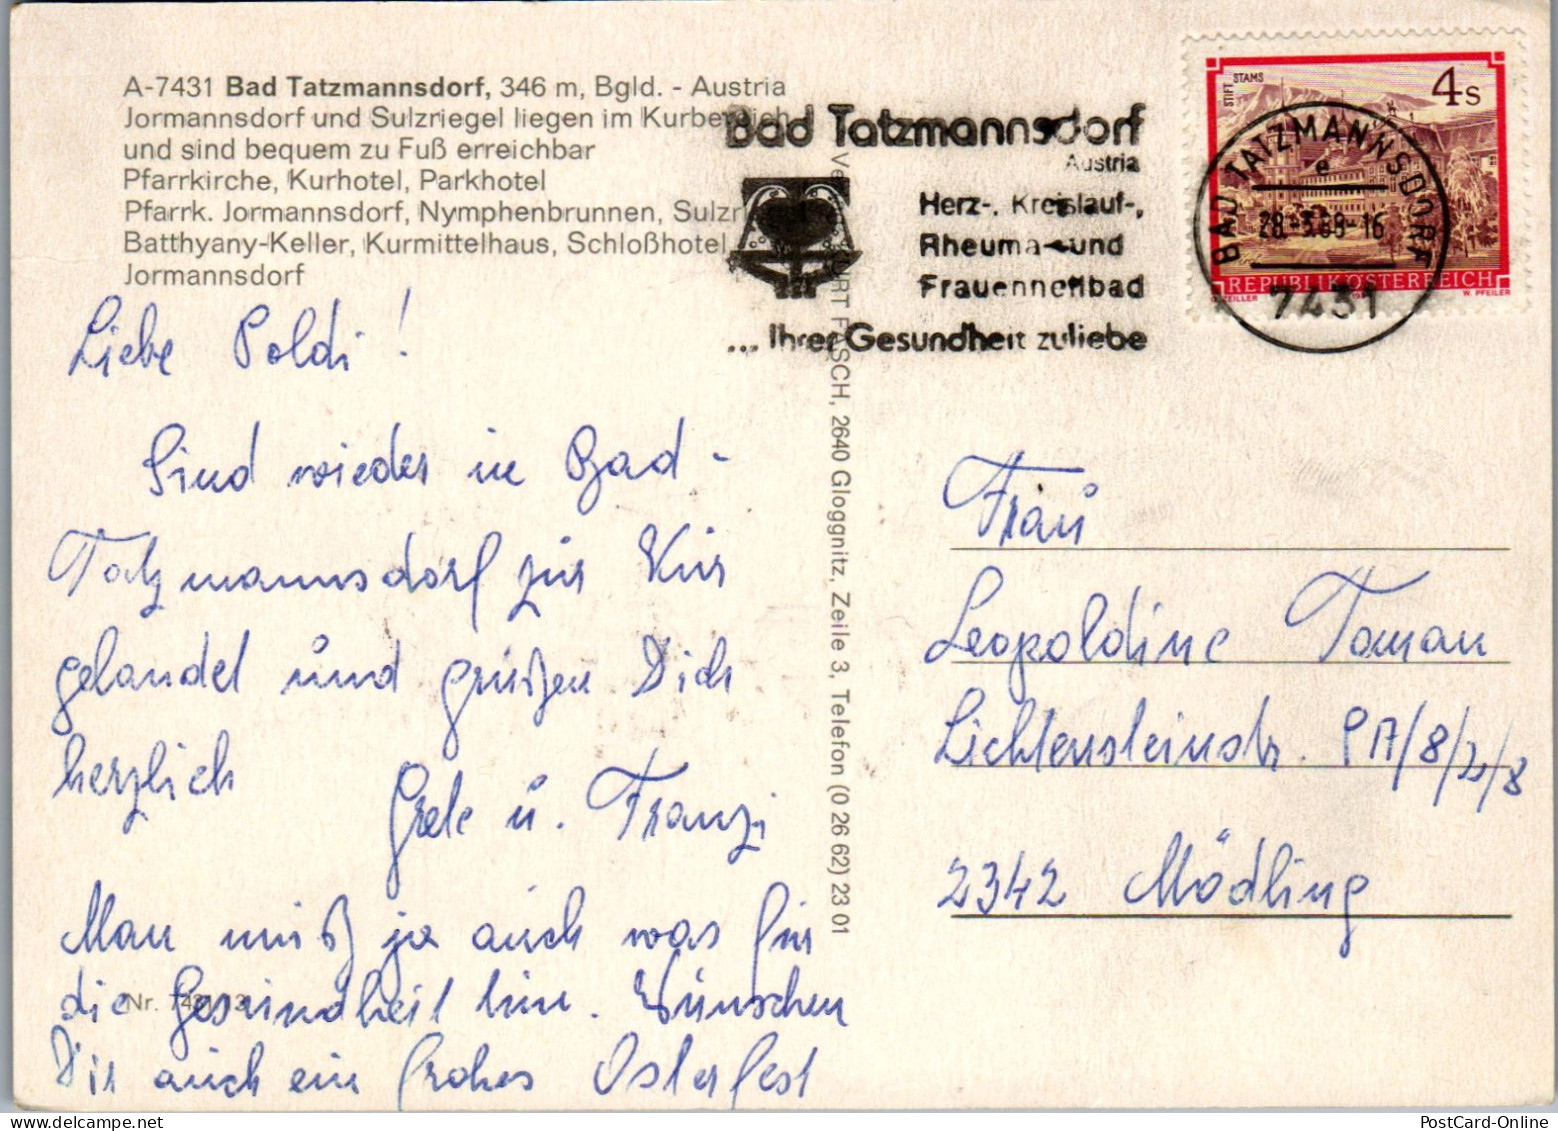 A-7431 Bad Tatzmannsdorf, 346 m, Bgld. - Austria
Jormannsdorf und Sulzriegel liegen im Kurbereich
und sind bequem zu Fuß erreichbar
Pfarrkirche, Kurhotel, Parkhotel
Pfarrk. Jormannsdorf, Nymphenbrunnen, Sulzriegel
Batthyany-Keller, Kurmittelhaus, Schloßhotel
Jormannsdorf
Liebe Poldi!
Sind wieder in Bad-
Tatzmannsdorf zur Kur
gelandet und grüßen Dich
herzlich
Grete u. Franzi
Man muß ja auch was für
die Gesundheit tun. Wünschen
Dir auch ein frohes Osterfest
Nr.
FASCH, 2640 Gloggnitz, Zeile 3, Telefon (0 26 62) 23 01
Bad Tatzmannsdorf
Austria
Herz-, Kreislauf-,
Rheuma- und
Frauenheilbad
... Ihrer Gesundheit zuliebe
STIFT STAMS
4s
REPUBLIK ÖSTERREICH
ZEILLER
W. PFEILER
BAD TATZMANNSDORF
e
7431
Frau
Leopoldine Toman
Lichtensteinstr.
2342 Mödling
PostCard-Online